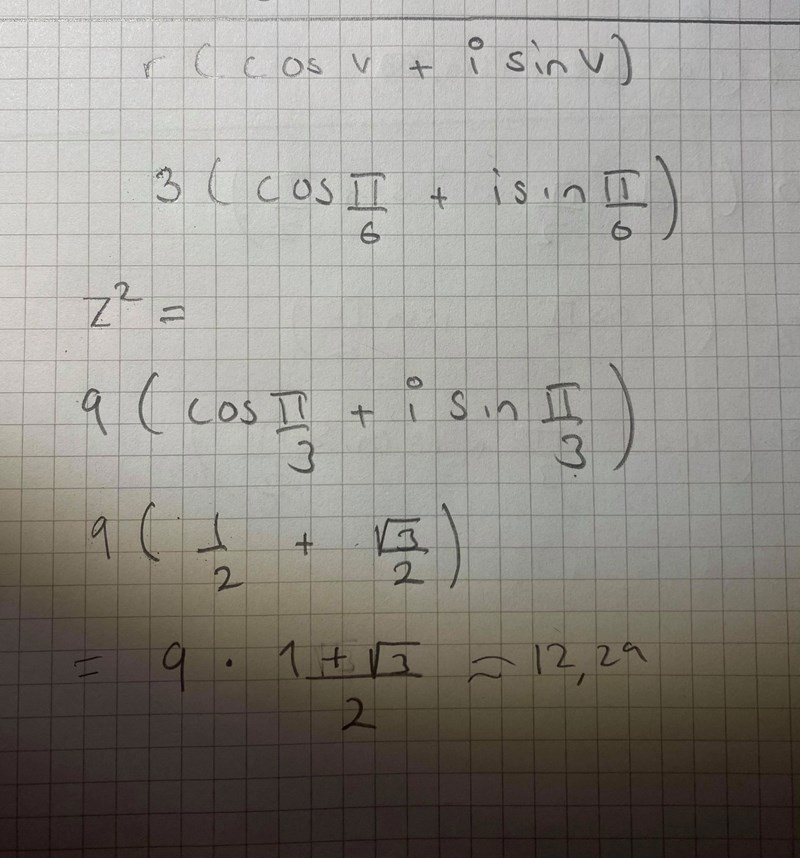 r (cos v + i sin v)
3 (cos π/6 + i sin π/6)
z² =
9 (cos π/3 + i sin π/3)
9 (1/2 + √3/2)
= 9 · (1 + √3)/2 ≈ 12,29